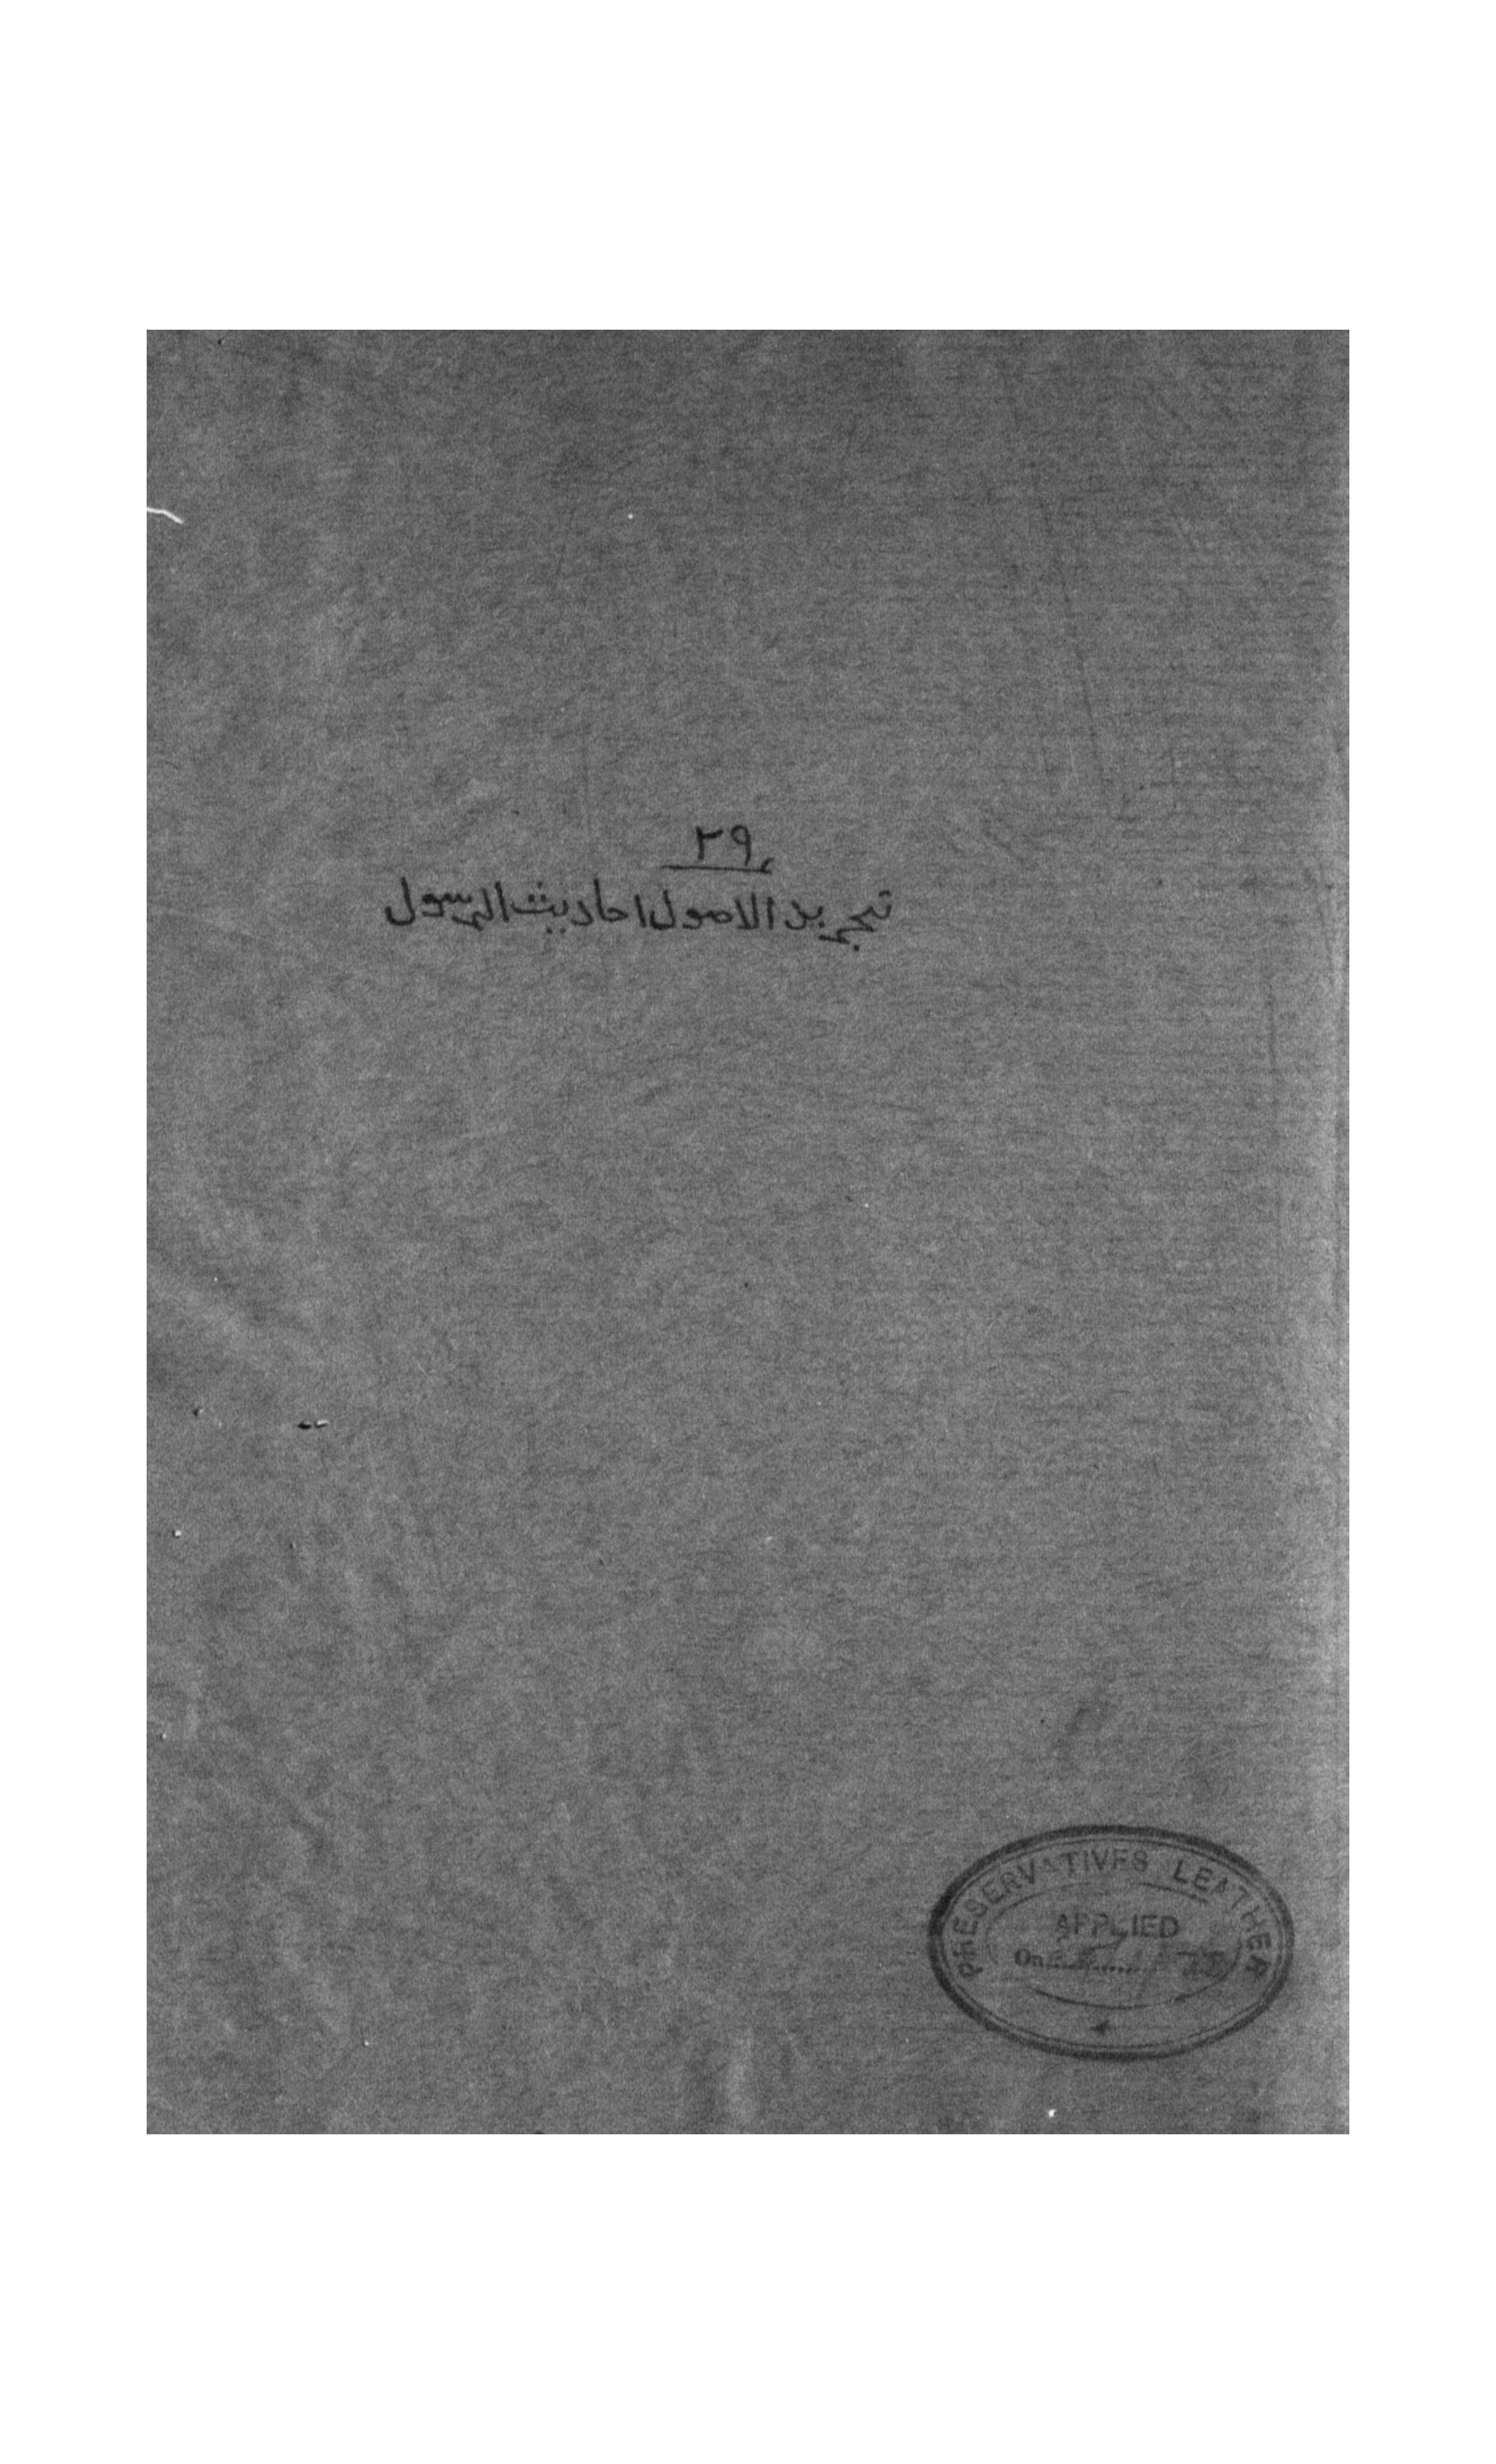 ٢٩
تجريد الاصول احاديث الرسول
PRESERVATIVES LEATHER
APPLIED
On